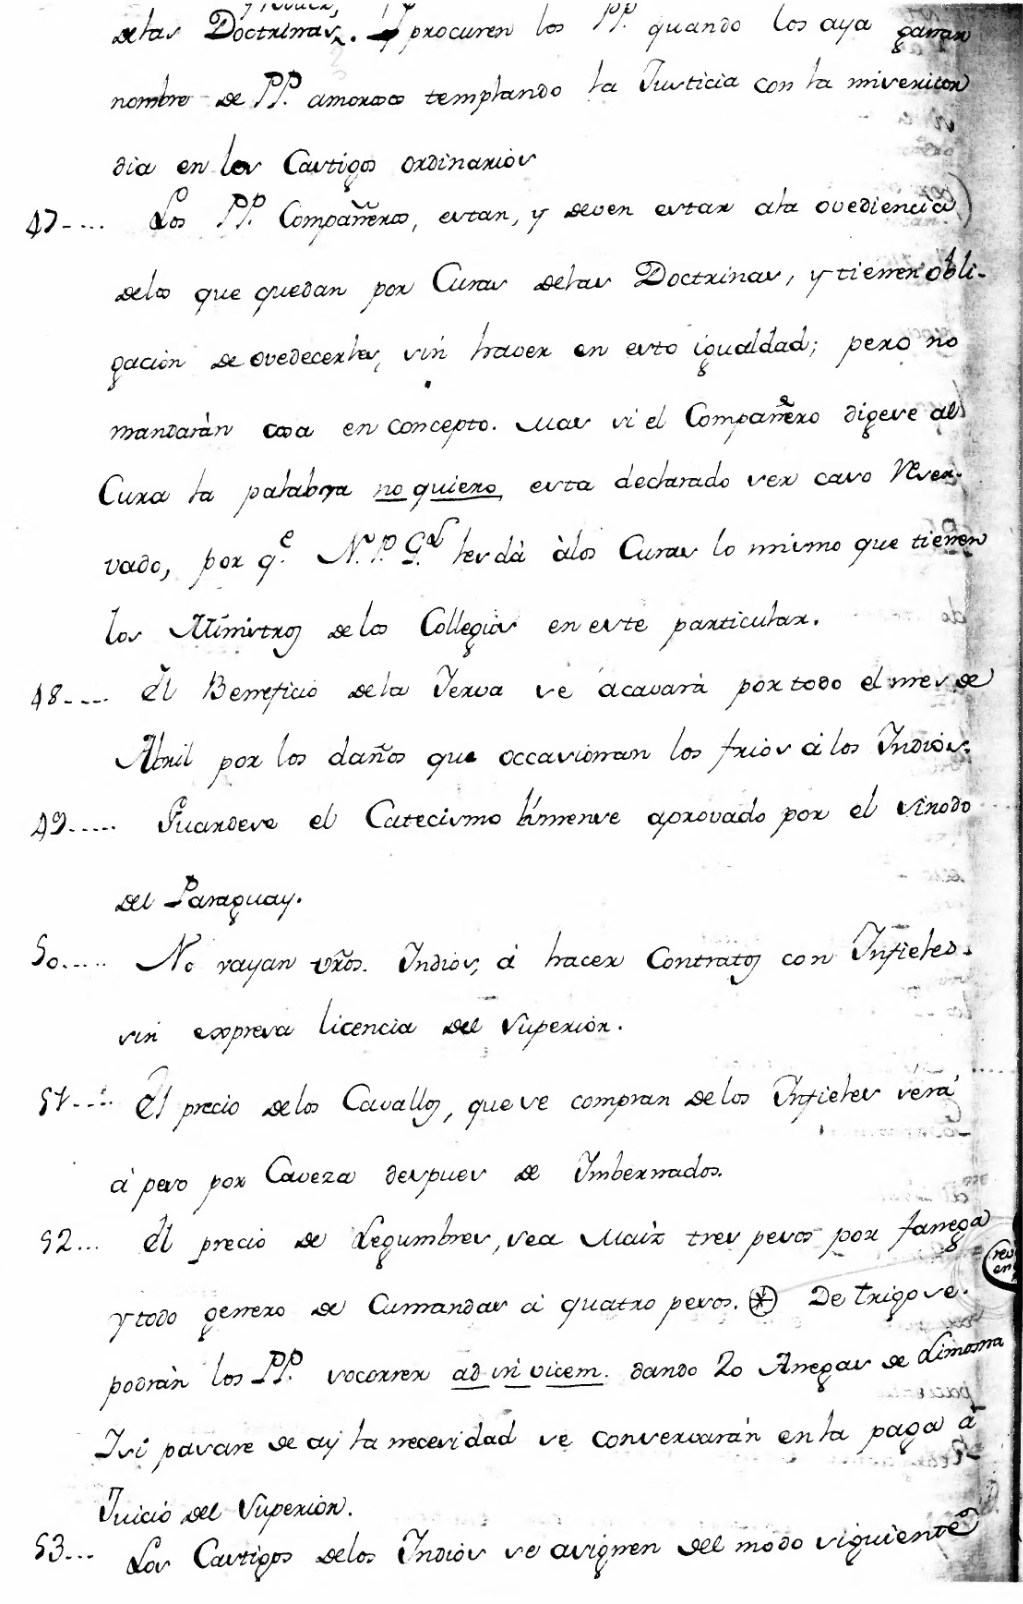 delas Doctrinas. Y procuren los PP. quando los aya ganar
nombre de PP. amorosos templando la Justicia con la misericor
dia en los Castigos ordinarios
47.... Los PP. Compañeros, estan, y deven estar ala ovediencia
delos que quedan por Curas delas Doctrinas, y tienen obli-
gación de ovedecerles, sin haver en esto igualdad; pero no
mandaràn cosa en concepto. Mas si el Compañero digese al
Cura la palabra no quiero, esta declarado ser caso Reser-
vado, por q.e N. P. G.al les dà àlos Curas lo mismo que tienen
los Ministros de los Collegios en este particular.
48.... El Beneficio dela Jerva se acavarà por todo el mes de
Abril por los daños que occasionan los frios á los Indios.
49..... Guardese el Catecismo Limense aprovado por el sinodo
del Paraguay.
50..... No vayan vros. Indios, á hacer Contratos con Infieles.
sin expresa licencia del Superior.
51.... El precio delos Cavallos, que se compran delos Infieles será
á peso por Caveza despues de Imbernados.
52... El precio de Legumbres, sea Maiz tres pesos por fanega
y todo genero de Cumandas á quatro pesos. De trigo se.
podràn los PP. socorrer ad in vicem. dando 20 Anegas de Limosna
I si pasare de ay la necesidad se conservarán en la paga á
Juicio del Superior.
53... Los Castigos delos Indios se asignen del modo siguiente